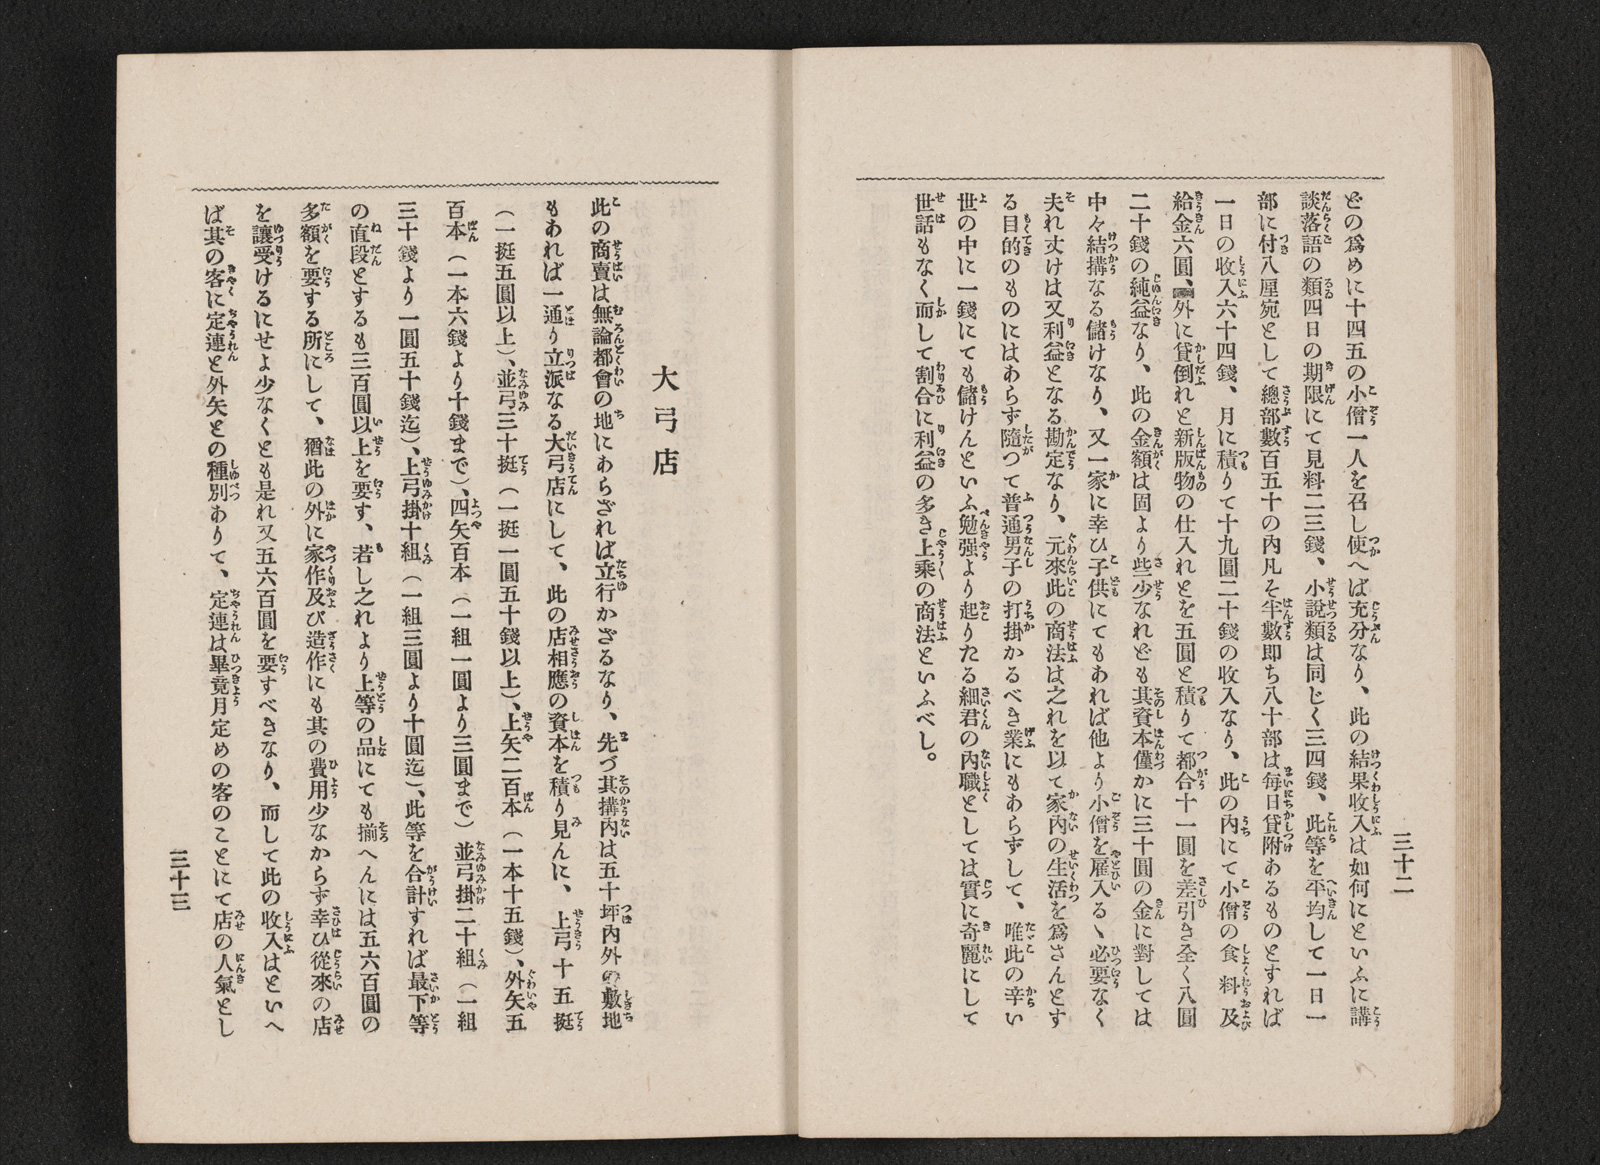 三十二
どの爲めに十四五の小僧一人を召し使へば充分なり、此の結果收入は如何にといふに講
談落語の類四日の期限にて見料二三錢、小說類は同じく三四錢、此等を平均して一日一
部に付八厘宛として總部數百五十の內凡そ半數即ち八十部は每日貸附あるものとすれば
一日の收入六十四錢、月に積りて十九圓二十錢の收入なり、此の內にて小僧の食料及
給金六圓、外に貸倒れと新版物の仕入れとを五圓と積りて都合十一圓を差引き全く八圓
二十錢の純益なり、此の金額は固より些少なれども其資本僅かに三十圓の金に對しては
中々結搆なる儲けなり、又一家に幸ひ子供にてもあれば他より小僧を雇入るヽ必要なく
夫れ丈けは又利益となる勘定なり、元來此の商法は之れを以て家內の生活を爲さんとす
る目的のものにはあらず隨つて普通男子の打掛かるべき業にもあらずして、唯此の辛い
世の中に一錢にても儲けんといふ勉强より起りたる細君の內職としては實に奇麗にして
世話もなく而して割合に利益の多き上乘の商法といふべし。
大弓店
此の商賣は無論都會の地にあらざれば立行かざるなり、先づ其搆內は五十坪內外の敷地
もあれば一通り立派なる大弓店にして、此の店相應の資本を積り見んに、上弓十五挺
（一挺五圓以上）、並弓三十挺（一挺一圓五十錢以上）、上矢二百本（一本十五錢）、外矢五
百本（一本六錢より十錢まで）、四矢百本（一組一圓より三圓まで）並弓掛二十組（一組
三十錢より一圓五十錢迄）、上弓掛十組（一組三圓より十圓迄）、此等を合計すれば最下等
の直段とするも三百圓以上を要す、若し之れより上等の品にても揃へんには五六百圓の
多額を要する所にして、猶此の外に家作及び造作にも其の費用少なからず幸ひ從來の店
を讓受けるにせよ少なくとも是れ又五六百圓を要すべきなり、而して此の收入はといへ
ば其の客に定連と外矢との種別ありて、定連は畢竟月定めの客のことにて店の人氣とし
三十三